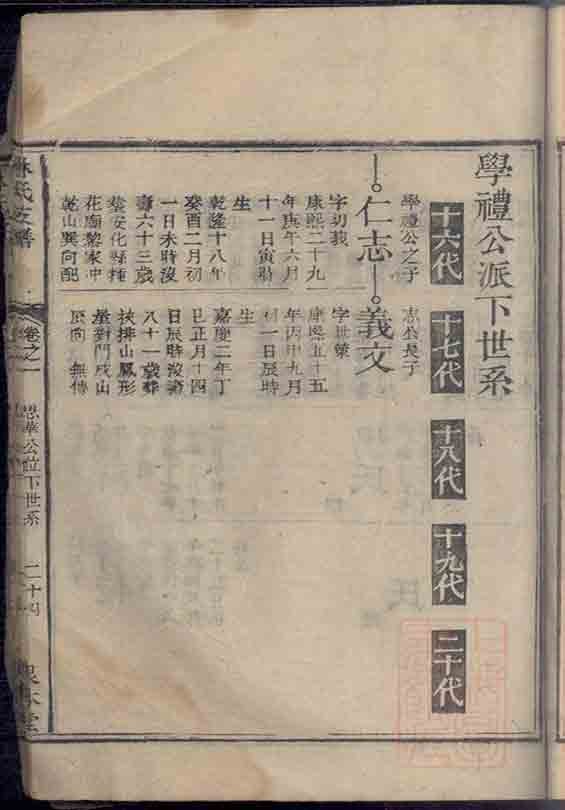 學禮公派下世系
十六代
十七代
十八代
十九代
二十代
學禮公之子
仁志
字切我
康熙二十九
年庚午六月
十一日寅時
生
乾隆十八年
癸酉二月初
一日未時沒
壽六十三歲
塟安化縣
花廟黎家冲
乾山巽向配
志公長子
義文
字世榮
康熙五十五
年丙申九月
初一日辰時
生
嘉慶二年丁
巳正月十四
日辰時沒壽
八十一歲葬
扶排山鳳形
對門戌山
辰向 無傳
林氏支譜
卷之一
思華公位下世系
二十四